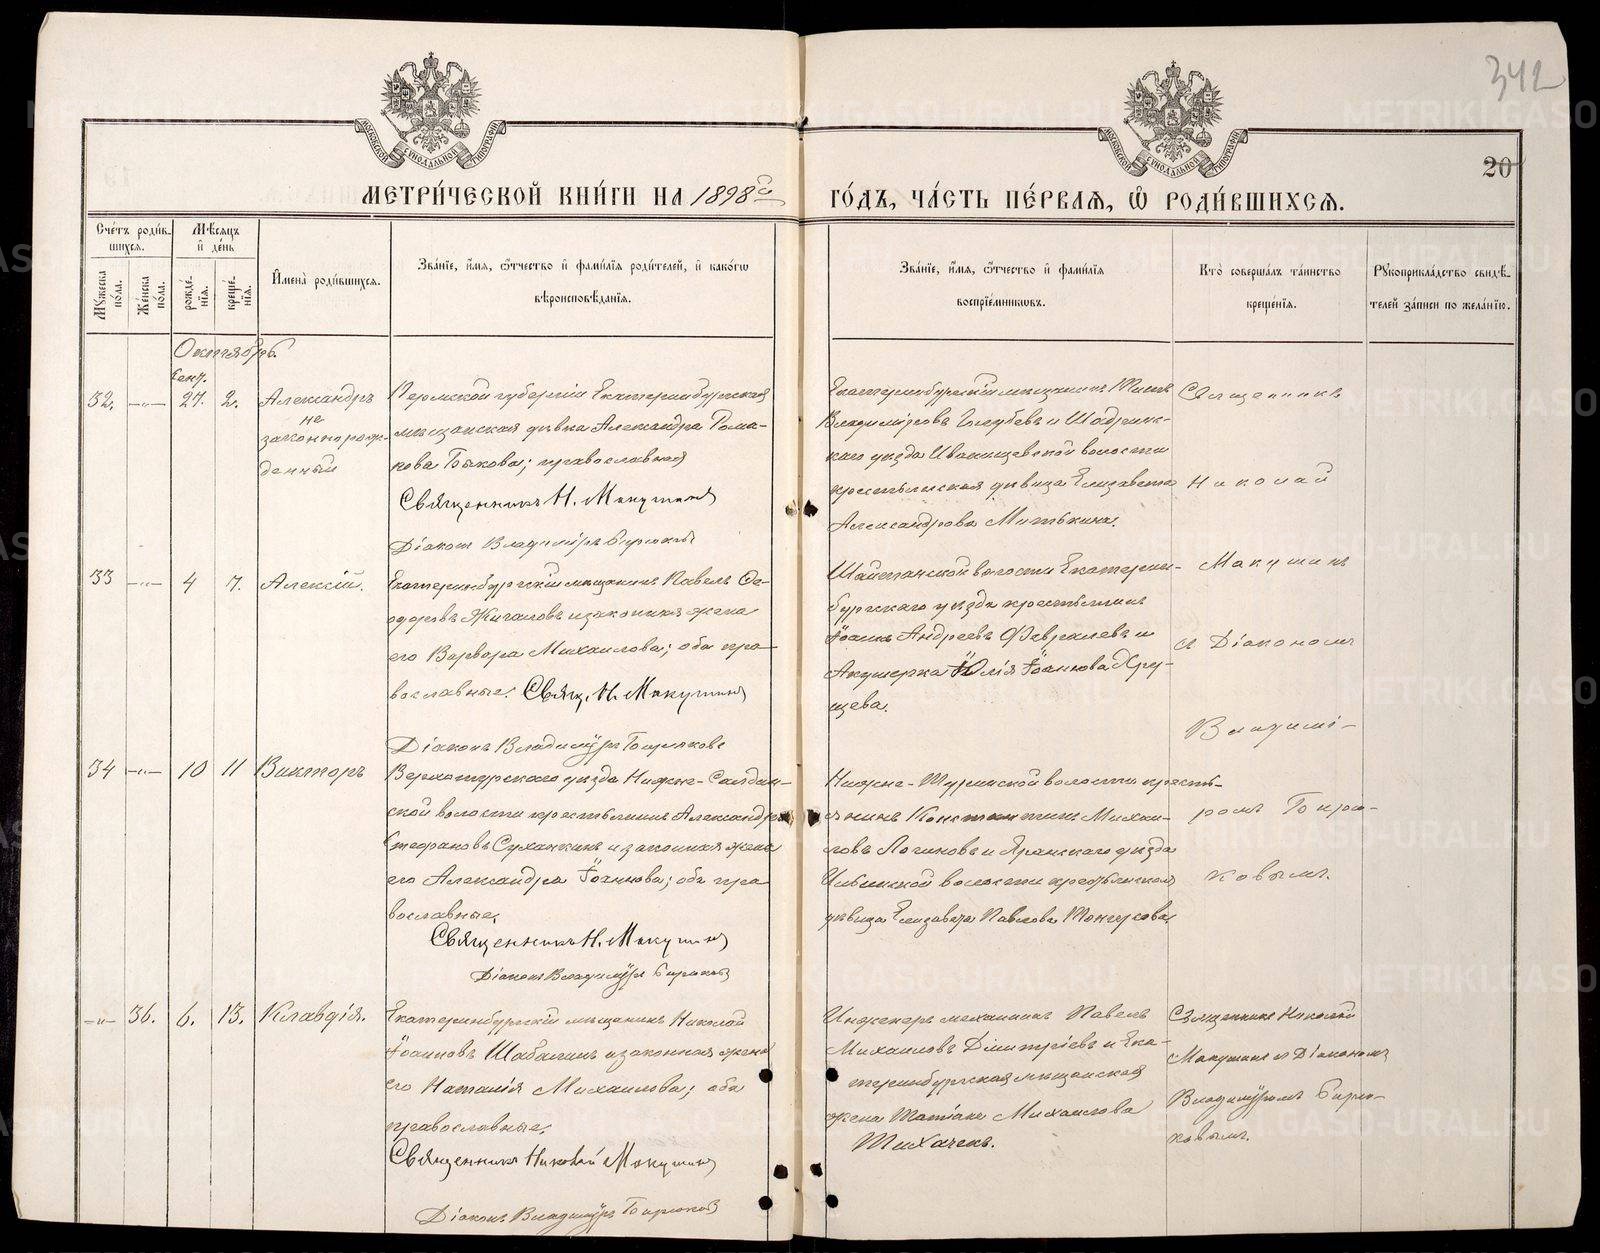 342
20
МОСКОВСКОЙ СѴНОДАЛЬНОЙ ТИПОГРАФІИ
МОСКОВСКОЙ СѴНОДАЛЬНОЙ ТИПОГРАФІИ
МЕТРИ́ЧЕСКОЙ КНИ́ГИ НА 1898й
ГО́ДЪ, ЧА́СТЬ ПЕ́РВАѦ, Ѡ҆ РОДИ́ВШИХСѦ.
Сче́тъ роди́в-
шихся.
Мѣ́сяцъ
и҆ де́нь
Мꙋ́жеска по́ла.
Же́нска по́ла.
рожде́-
нїя.
креще́-
нїя.
И҆мена̀ роди́вшихся.
Зва́нїе, и҆́мя, ѻ҆́тчество и҆ фами́лїя роди́телей, и҆ како́гѡ
вѣроисповѣ́данїя.
Зва́нїе, и҆́мя, ѻ҆́тчество и҆ фами́лїя
воспрїе́мникѡвъ.
Кто̀ соверша́лъ та́инство
креще́нїя.
Рꙋкоприкла́дство свидѣ́-
телей за́писи по жела́нїю.
Октябрь.
Сент.
32. -„- 27. 2. Александръ
не
законнорож-
денный
Пермской губерніи Екатеринбургская
мѣщанская дѣвка Александра Рома-
нова Быкова; православная
Священникъ Н. Макушинъ
Діаконъ Владиміръ Бирюковъ
Екатеринбургскій мѣщанинъ
Владиміровъ Голубевъ и Шадрин-
скаго уѣзда Иванищевской волости
крестьянская дѣвица Елизавета
Александрова Митькина.
Священникъ
Николай
Макушинъ
съ Діакономъ
Владимі-
ромъ Бирю-
ковымъ.
33 -„- 4 7. Алексій.
Екатеринбургскій мѣщанинъ Павелъ Ѳе-
одоровъ Жигаловъ и законная жена
его Варвара Михаилова; оба пра-
вославные. Свящ. Н. Макушинъ
Діаконъ Владиміръ Бирюковъ
Шайтанской волости Екатерин-
бургскаго уѣзда крестьянинъ
Іоаннъ Андреевъ Февралевъ и
Акушерка Юлія Іоаннова Хру-
щева.
34 -„- 10 11 Викторъ
Верхотурскаго уѣзда Нижне-Салдин-
ской волости крестьянинъ Александръ
Стефановъ Суханкинъ и законная жена
его Александра Іоаннова; оба пра-
вославные.
Священникъ Н. Макушинъ
Діаконъ Владиміръ Бирюковъ
Нижне-Туринской волости кресть-
янинъ Константинъ Михаи-
ловъ Логиновъ и Яранскаго уѣзда
волости крестьянская
дѣвица Елизавета Павлова
-„- 36. 6. 13. Клавдія.
Екатеринбургскій мѣщанинъ Николай
Іоанновъ Шабалинъ и законная жена
его Наталія Михаилова; оба
православные.
Священникъ Николай Макушинъ
Діаконъ Владиміръ Бирюковъ
Инженеръ механикъ Павелъ
Михаиловъ Димитріевъ и Ека-
теринбургская мѣщанская
жена Татіана Михаилова
Тихачекъ.
Священникъ Николай
Макушинъ съ Діакономъ
Владиміромъ Бирю-
ковымъ.
METRIKI.GASO-URAL.RU